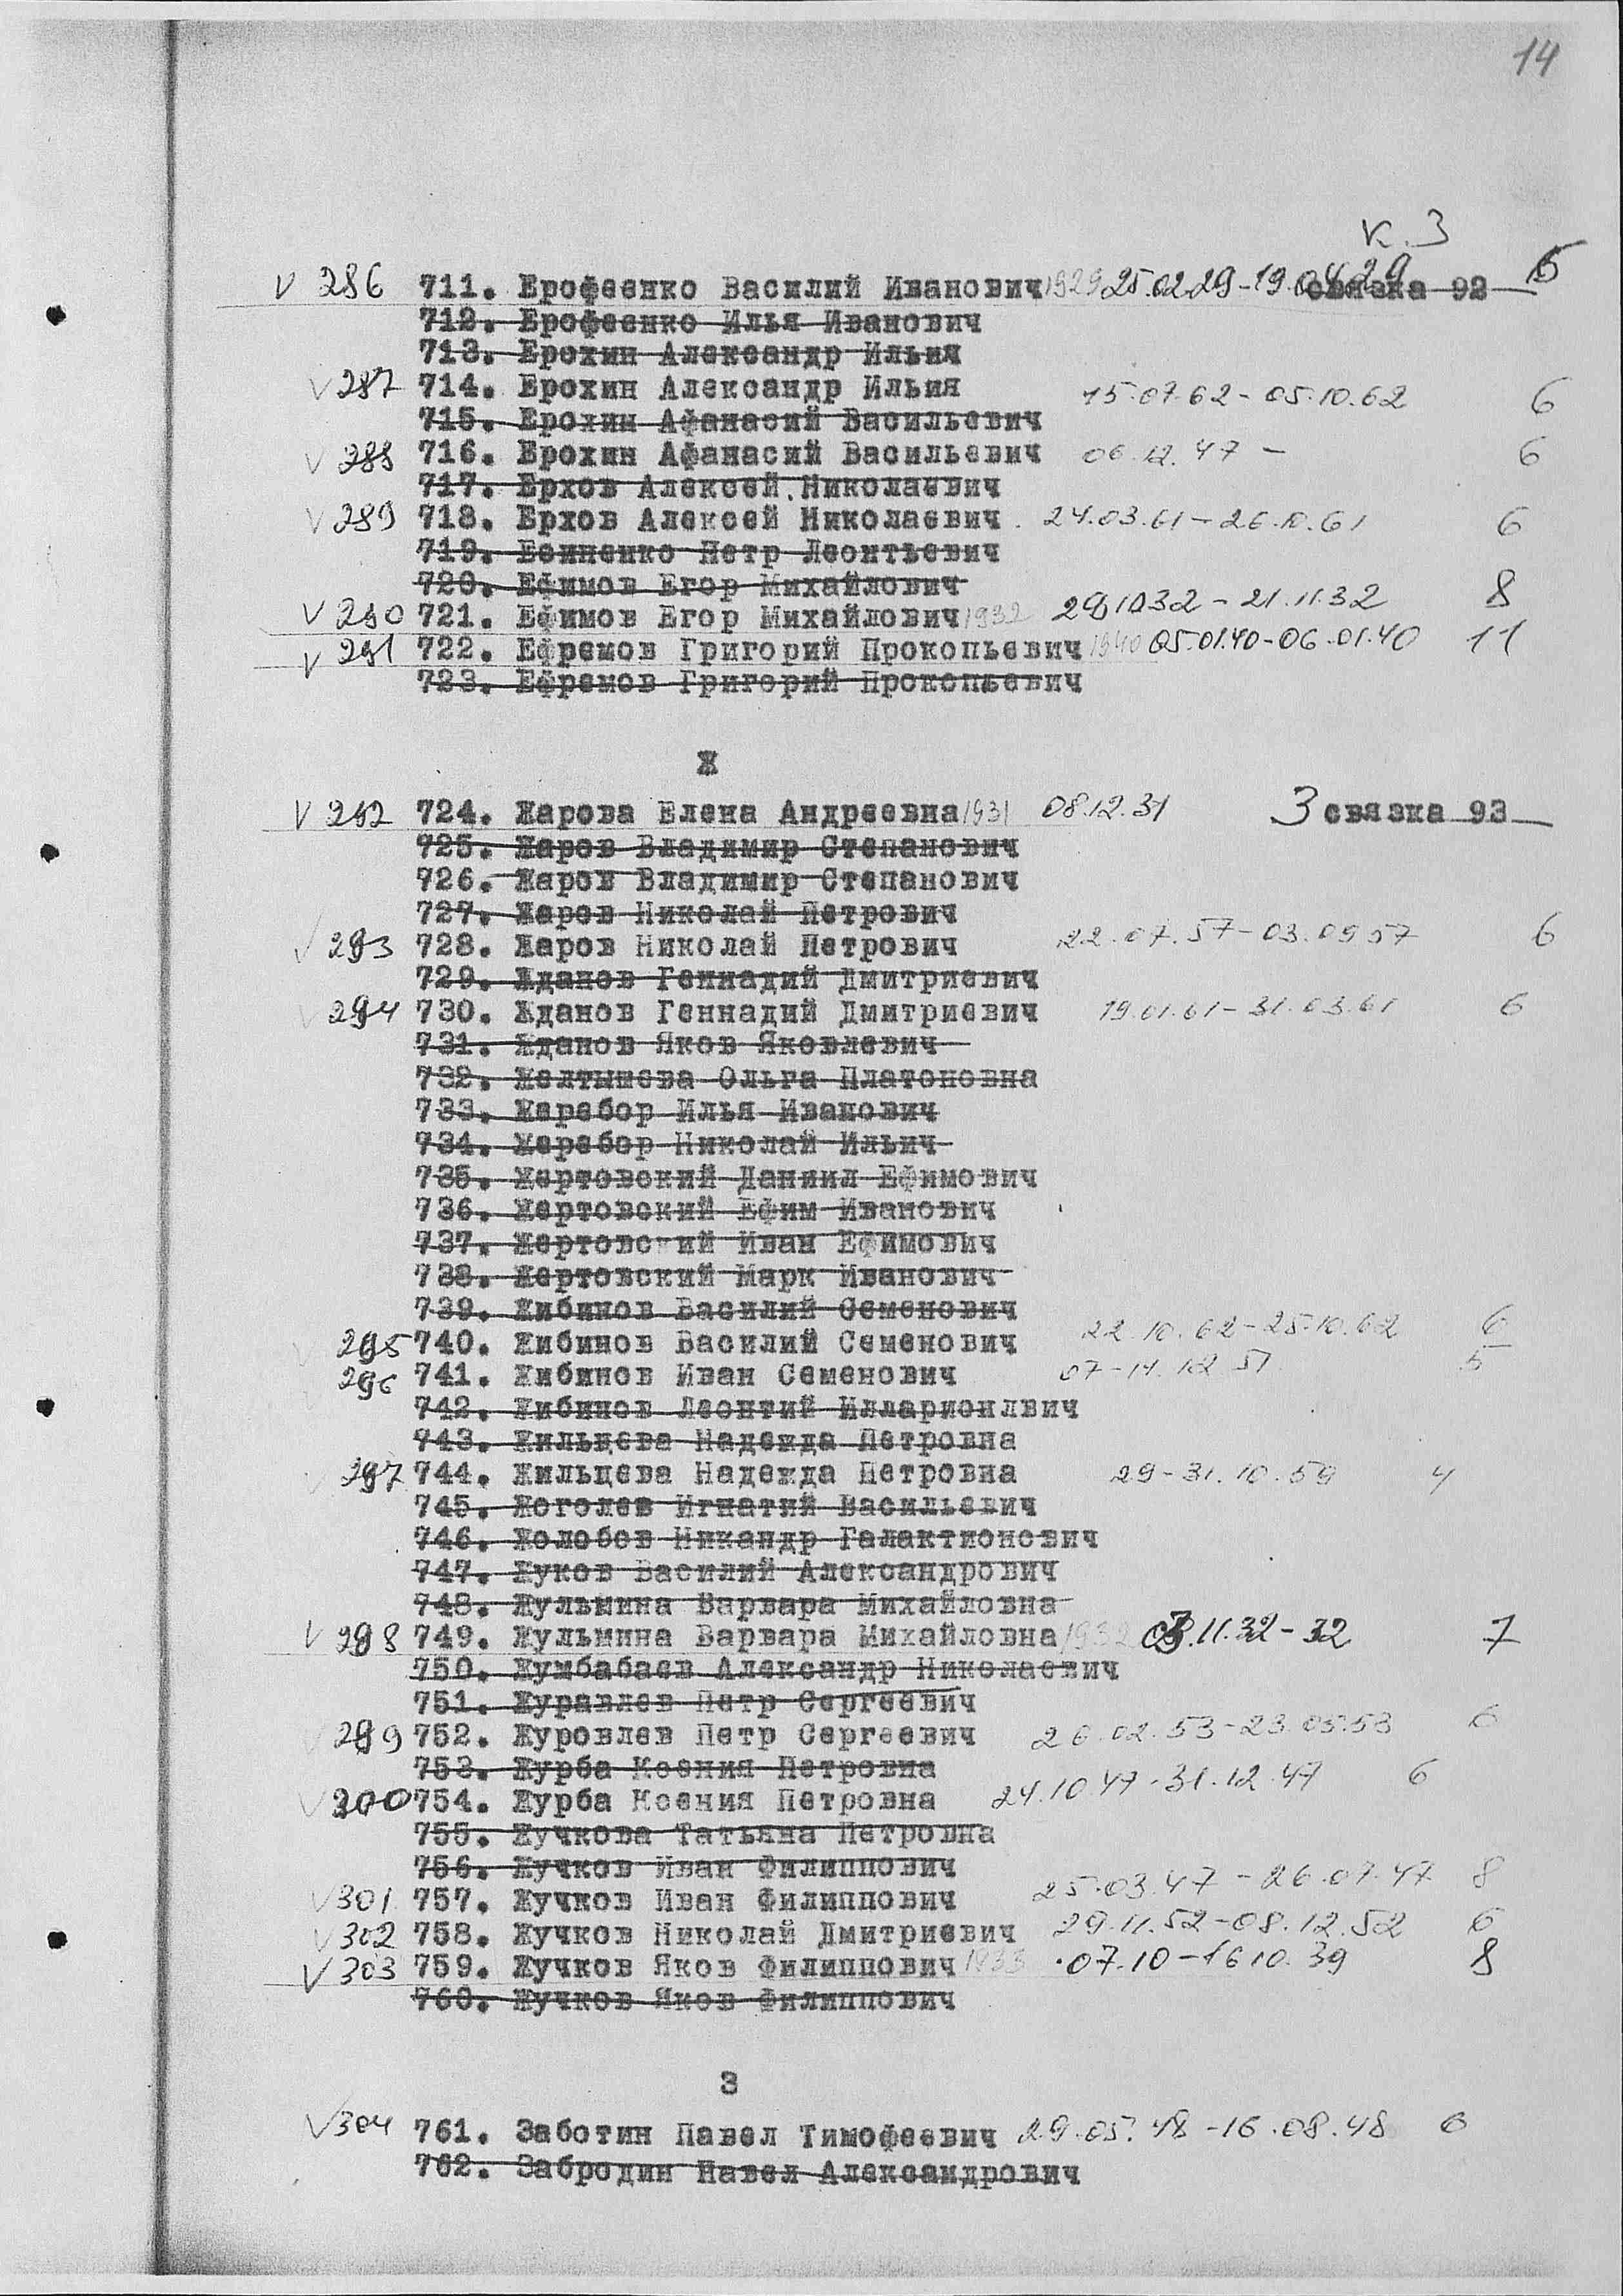 14
к. 3
V 286 711. Ерофеенко Василий Иванович 1929 25.02.29-19.04.29 связка 92 6
712. Ерофеенко Илья Иванович
713. Ерохин Александр Ильия
V 287 714. Ерохин Александр Ильия 15.07.62-05.10.62 6
715. Ерохин Афанасий Васильевич
V 288 716. Ерохин Афанасий Васильевич 06.12.47- 6
717. Ерхов Алексей Николаевич
V 289 718. Ерхов Алексей Николаевич 24.03.61-26.10.61 6
719. Есиненко Петр Леонтьевич
720. Ефимов Егор Михайлович
V 290 721. Ефимов Егор Михайлович 1932 29.10.32-21.11.32 8
V 291 722. Ефремов Григорий Прокопьевич 1940 05.01.40-06.01.40 11
723. Ефремов Григорий Прокопьевич
Ж
V 292 724. Жарова Елена Андреевна 1931 08.12.31 3 связка 93
725. Жаров Владимир Степанович
726. Жаров Владимир Степанович
727. Жаров Николай Петрович
V 293 728. Жаров Николай Петрович 22.07.57-03.09.57 6
729. Жданов Геннадий Дмитриевич
V 294 730. Жданов Геннадий Дмитриевич 19.01.61-31.03.61 6
731. Жданов Яков Яковлевич
732. Желтышева Ольга Платоновна
733. Жеребор Илья Иванович
734. Жеребор Николай Ильич
735. Жертовский Даниил Ефимович
736. Жертовский Ефим Иванович
737. Жертовский Иван Ефимович
738. Жертовский Марк Иванович
739. Жибинов Василий Семенович
295 740. Жибинов Василий Семенович 22.10.62-25.10.62 6
296 741. Жибинов Иван Семенович 07-14.12.51 5
742. Жибинов Леонтий Илларионлвич
743. Жильцева Надежда Петровна
V 297 744. Жильцева Надежда Петровна 29-31.10.59 4
745. Жоголев Игнатий Васильевич
746. Жолобов Никандр Галактионович
747. Жуков Василий Александрович
748. Жульмина Варвара Михайловна
V 298 749. Жульмина Варвара Михайловна 1932 03.11.32-32 7
750. Жумбабаев Александр Николаевич
751. Журавлев Петр Сергеевич
V 299 752. Журовлев Петр Сергеевич 26.02.53-23.05.53 6
753. Журба Ксения Петровна
V 300 754. Журба Ксения Петровна 24.10.47-31.12.47 6
755. Жучкова Татьяна Петровна
756. Жучков Иван Филиппович
V 301 757. Жучков Иван Филиппович 25.03.47-26.07.47 8
V 302 758. Жучков Николай Дмитриевич 29.11.52-08.12.52 6
V 303 759. Жучков Яков Филиппович 1933 07.10-16 10.39 8
760. Жучков Яков Филиппович
З
V 304 761. Заботин Павел Тимофеевич 29.05.48-16.08.48 6
762. Забродин Павел Александрович